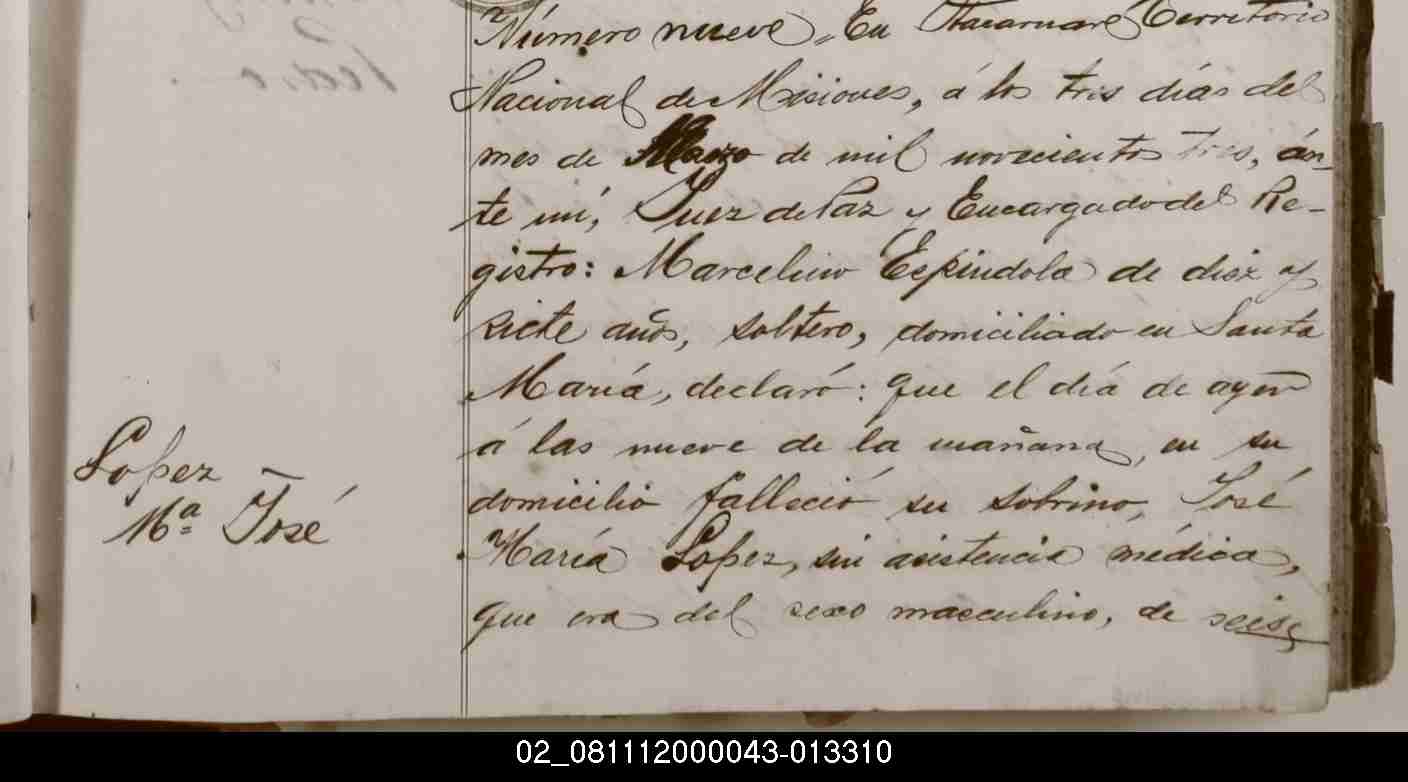 Número nueve, En Itacaruaré Territorio
Nacional de Misiones, á los tres días del
mes de Marzo de mil novecientos tres, án_
te mí, Juez de Paz y Encargado del Re-
gistro: Marcelino Espindola de diez y
siete años, soltero, domiciliado en Santa
María, declaró: que el día de ayer
á las nueve de la mañana, en su
domicilio falleció su sobrino, José
María Lopez, sin asistencia médica,
que era del sexo masculino, de seis
Lopez
Mª José
Pedro
02_081112000043-013310